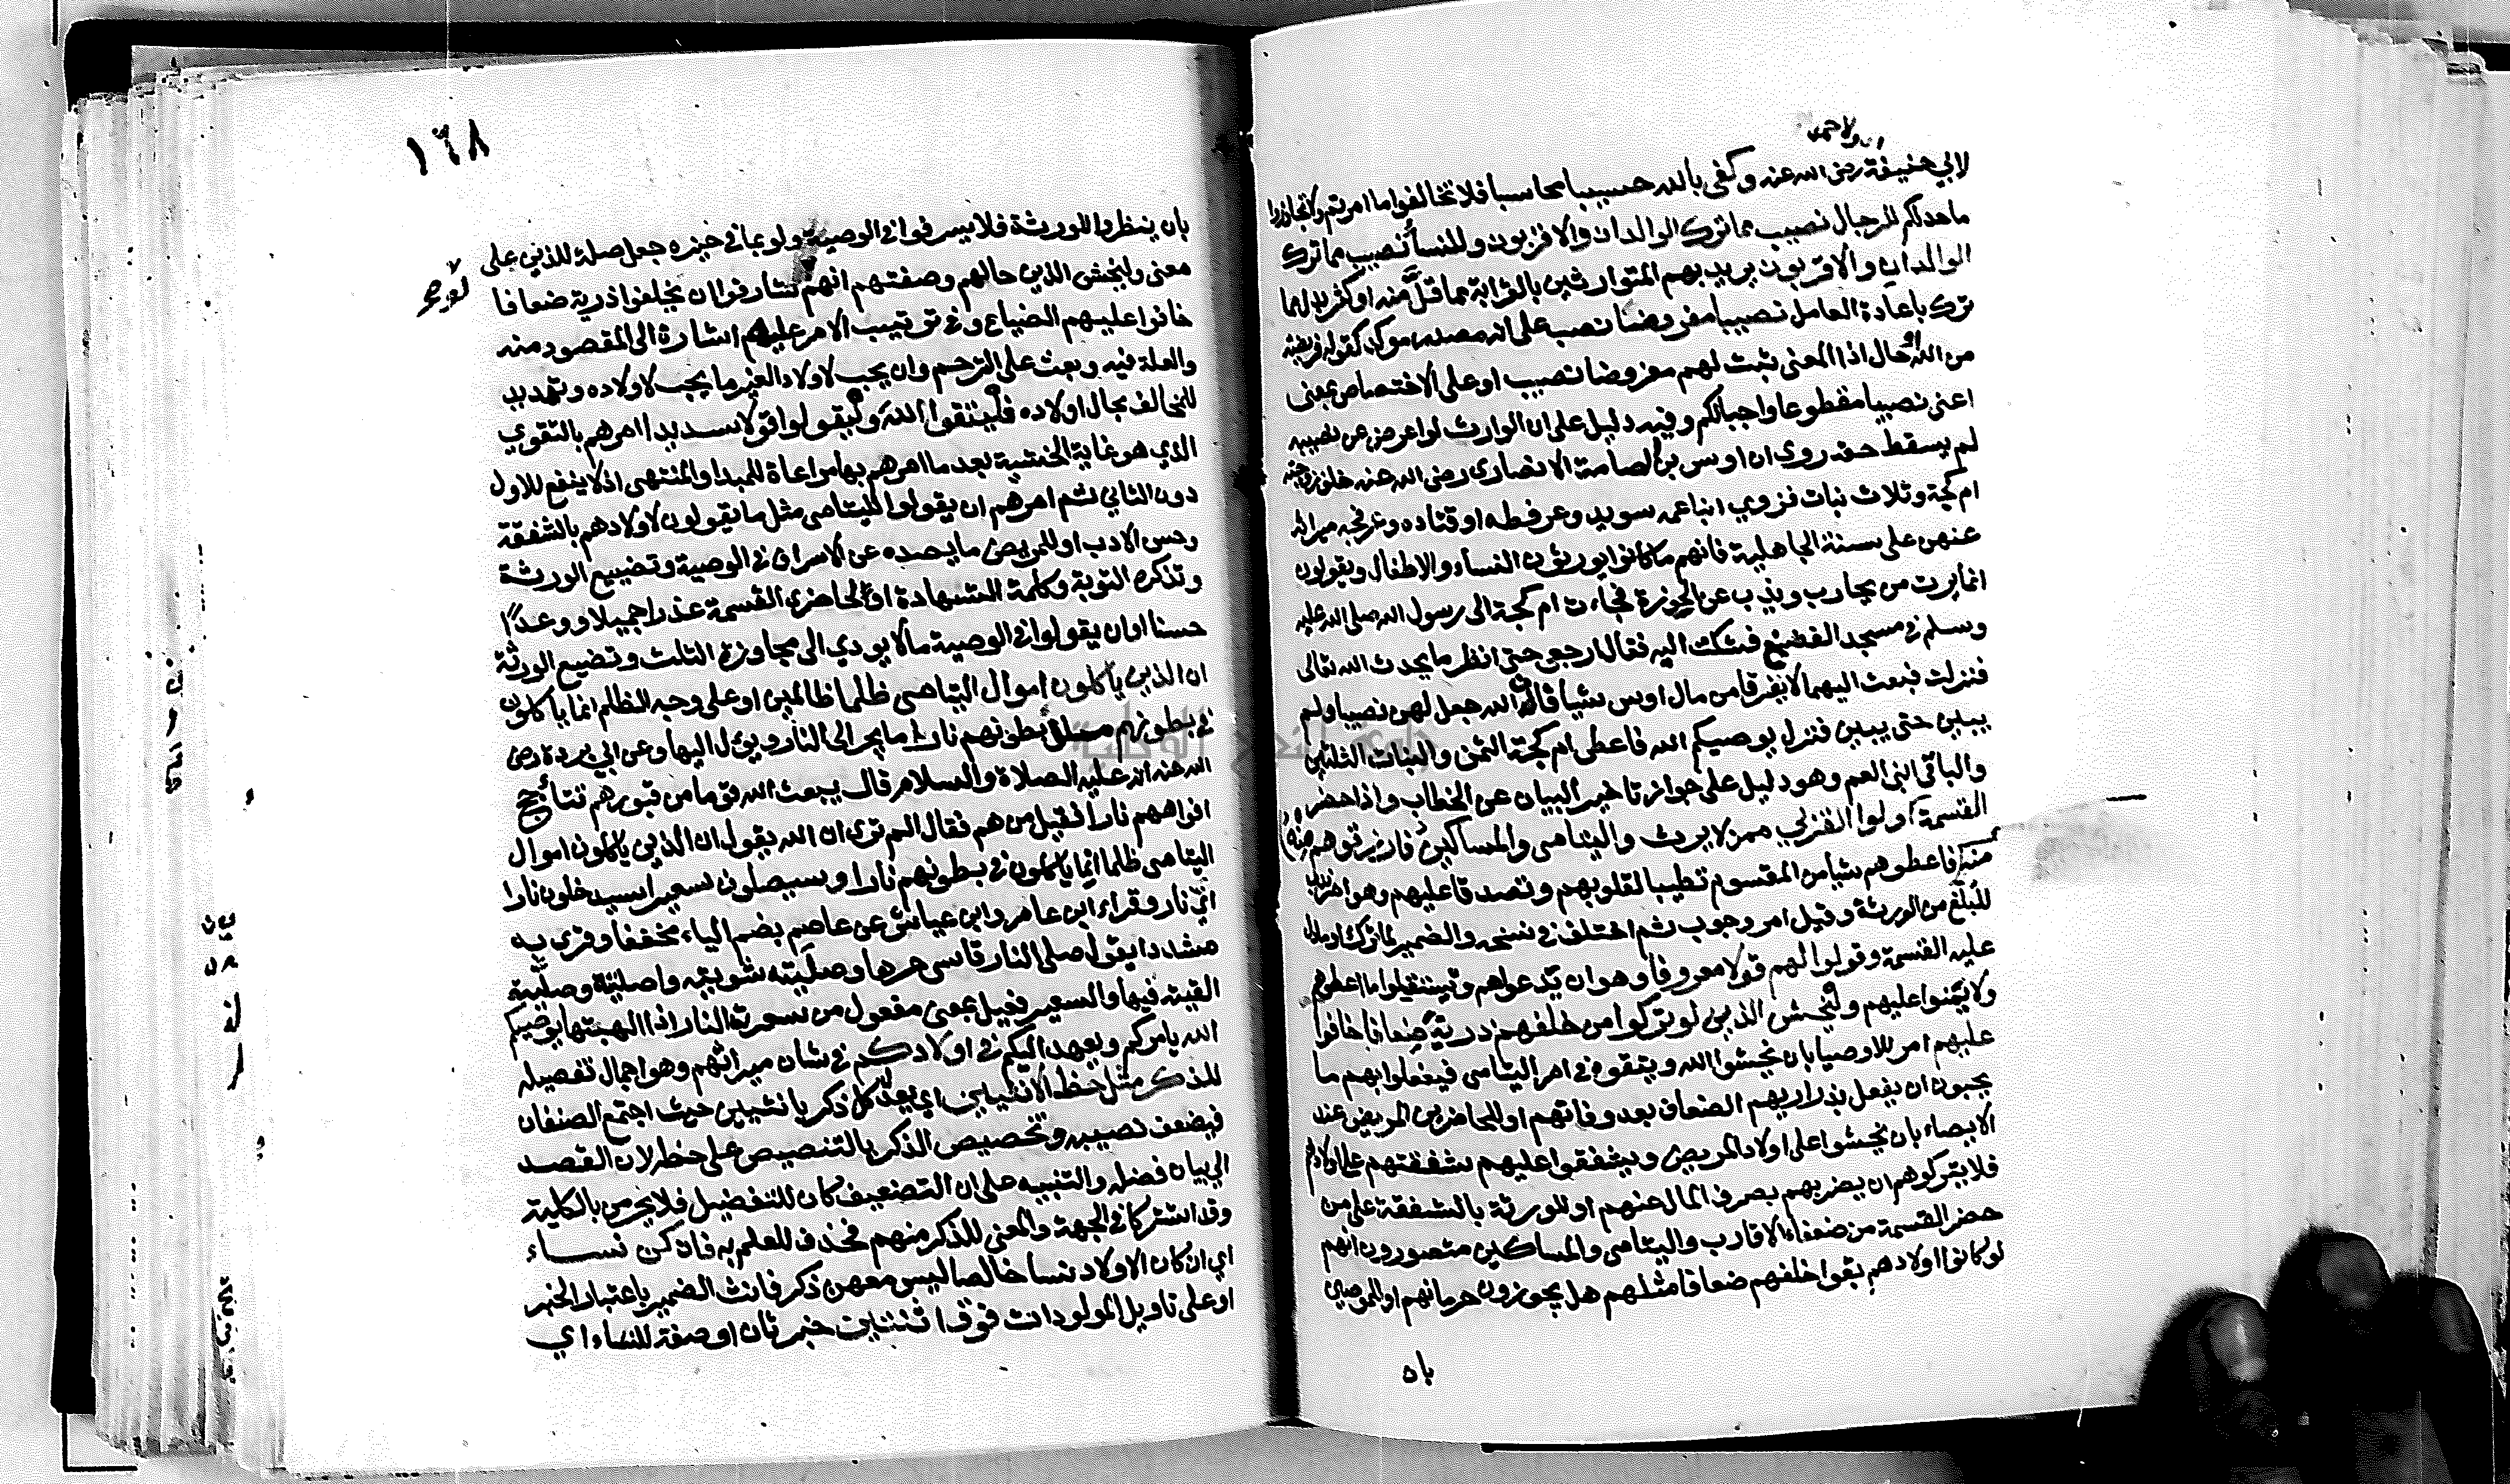 لابي حنيفة رضى الله عنه وكفى بالله حسيبا محاسبا فلا تخالفوا ما امرتم ولا تجاوزوا
ما حد لكم للرجال نصيب مما ترك الوالدان والاقربون وللنسأ نصيب مما ترك
الوالدان والاقربون يريد بهم المتوارثين بالقرابة مما قل منه او كثر بدل مما
ترك باعادة العامل نصيبا مفروضا نصب على انه مصدر موكد كقوله فريضة
من الله او حال اذ المعنى ثبت لهم مفروضا نصيب او على الاختصاص بمعنى
اعنى نصيبا مقطوعا واجبا لكم وفيه دليل على ان الوارث لو اعرض عن نصيبه
لم يسقط حقه روي ان اوس بن الصامة الانصارى رضى الله عنه خلف زوجته
ام كجة وثلاث بنات فزوي ابنا عمه سويد وعرفطه او قتاده وعرفجه ميراثه
عنهن على سنة الجاهلية فانهم ما كانوا يورثون النساء والاطفال ويقولون
انما يرث من يحارب ويذب عن الحوزة فجاءت ام كجة الى رسول الله صلى الله عليه
وسلم في مسجد الفضيخ فشكت اليه فقال ارجعي حتى انظر ما يحدث الله تعالى
فنزلت فبعث اليهما لا تفرقا من مال اوس شيا فان الله جعل لهن نصيبا ولم
يبين حتى يبين فنزل يوصيكم الله فاعطى ام كجة الثمن والبنات الثلثين
والباقي ابنى العم وهو دليل على جواز تاخير البيان عن الخطاب واذا حضر
القسمة اولوا القربي ممن لا يرث واليتامى والمساكين فارزقوهم منه
فاعطوهم شيأ من المقسوم تطييبا لقلوبهم وتصدقا عليهم وهو امر ندب
للبلغ من الورثة وقيل امر وجوب ثم اختلف في نسخه والضمير لما ترك او ما دل
عليه القسمة وقولوا لهم قولا معروفا وهو ان يدعوا لهم ويستقلوا ما اعطوهم
ولا يمنوا عليهم وليخش الذين لو تركوا من خلفهم ذرية ضعافا خافوا
عليهم امر للاوصيا بان يخشوا الله ويتقوه في امر اليتامى فيفعلوا بهم ما
يحبون ان يفعل بذراريهم الضعاف بعد وفاتهم او للحاضرين المريض عند
الايصاء بان يخشوا على اولاد المريض ويشفقوا عليهم شفقتهم على اولادهم
فلا يتركوهم ان يضر بهم بصرف المال عنهم او للورثة بالشفقة على من
حضر القسمة من ضعفاء الاقارب واليتامى والمساكين متصورون انهم
لو كانوا اولادهم بقوا خلفهم ضعافا مثلهم هل يجوزون حرمانهم او للموصين
بان
١٦٨
بان ينظروا للورثة فلا يسرفوا في الوصية ولو بما في خيره جعل صلة للذين على
معنى وليخش الذين حالهم وصفتهم انهم لو شارفوا ان يخلفوا ذرية ضعافا
خافوا عليهم الضياع وفي ترتيب الامر عليهم اشارة الى المقصود منه
والعلة فيه وبعث على الترحم وان يحب لاولاد الغير ما يحب لاولاده وتهديد
للمخالف بحال اولاده فليتقوا الله وليقولوا قولا سديدا امرهم بالتقوي
الذي هو غاية الخشية بعد ما امرهم بها مراعاة للمبدا والمنتهى اذ لا ينفع للاول
دون الثاني ثم امرهم ان يقولوا لليتامى مثل ما يقولون لاولادهم بالشفقة
وحسن الادب او للمريض ما يصده عن الاسراف في الوصية وتضييع الورثة
وتذكره التوبة وكلمة الشهادة او لحاضرى القسمة عذرا جميلا ووعدا
حسنا او ان يقولوا في الوصية ما لا يودي الى مجاوزة الثلث وتضيع الورثة
ان الذين ياكلون اموال اليتامى ظلما ظالمين او على وجه الظلم انما ياكلون
في بطونهم ملأ بطونهم نارا ما يجر الى النار ويؤل اليها وعن ابي بردة رضى
الله عنه انه عليه الصلاة والسلام قال يبعث الله قوما من قبورهم تتأجج
افواههم نارا فقيل من هم فقال الم ترى ان الله يقول ان الذين ياكلون اموال
اليتامى ظلما انما ياكلون في بطونهم نارا وسيصلون سعيرا سيدخلون نارا
اي نار وقراء ابن عامر وابن عياش عن عاصم بضم الياء مخففا وقرى به
مشددا يقال صلى النار قاسى حرها وصليته شويته واصليته وصليته
القيته فيها والسعير فعيل بمعنى مفعول من سعرت النار اذا الهبتها يوصيكم
الله يامركم ويعهد اليكم في اولادكم في شان ميراثهم وهو اجمال تفصيله
للذكر مثل حظ الانثيين اي يعد كل ذكر بانثيين حيث اجتمع الصنفان
فيضعف نصيبه وتخصيص الذكر بالتنصيص على حظه لان القصد
الى بيان فضله والتنبيه على ان التضعيف كان للتفضيل فلا يحرمن بالكلية
وقد اشتركا في الجهة والمعنى للذكر منهم فحذف للعلم به فان كن نساء
اي ان كان الاولاد نسا خالصا ليس معهن ذكر فانث الضمير باعتبار الخبر
او على تاويل المولودات فوق اثنتين خبر ثان او صفة للنساء اي